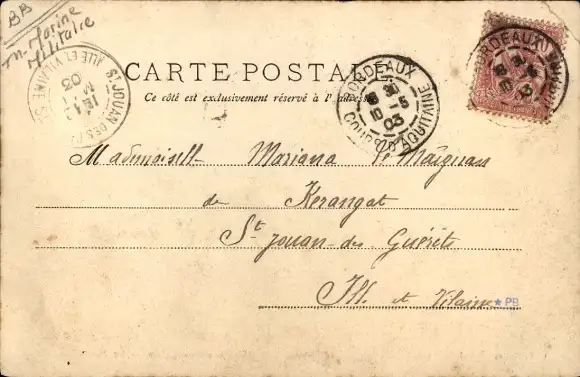 BB
M. Marine
Militaire
CARTE POSTALE
Ce côté est exclusivement réservé à l'adresse
BORDEAUX
8 30
10 -5
03
COURS D'AQUITAINE
BORDEAUX
10
ST JOUAN DES
ILLE ET VILAINE
03
Mademoiselle Mariana de Maignan
de Kerangat
St Jouan-des-Guérets
Ill. et Vilaine
PB